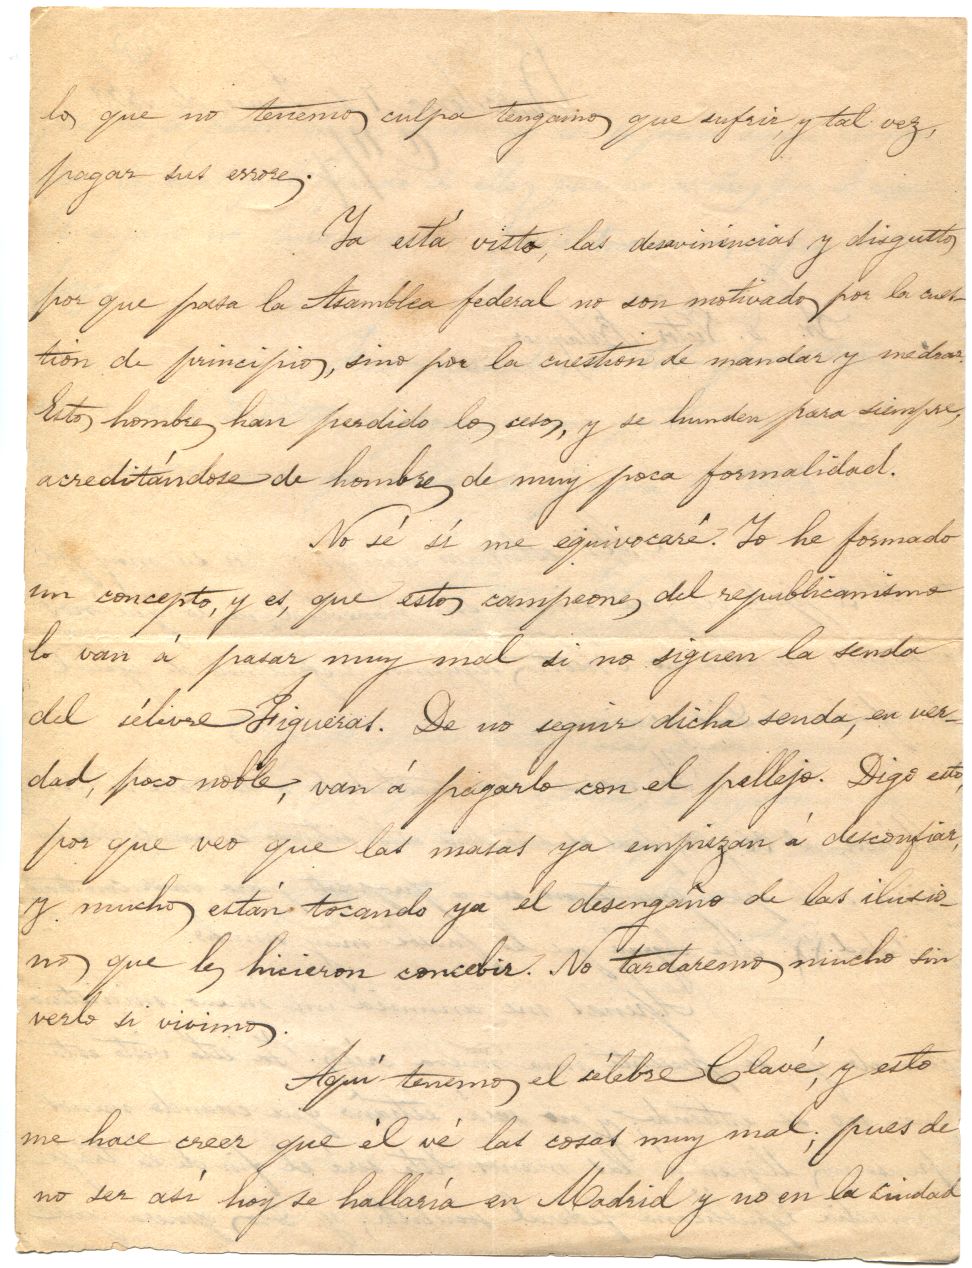 los que no tenemos culpa tengamos que sufrir, y tal vez,
pagar sus errores.
Ya está visto, las desavinincias y disgustos
por que pasa la Asamblea federal no son motivados por la cues-
tión de principios, sino por la cuestión de mandar y medrar.
Estos hombres han perdido los cesos, y se hunden para siempre,
acreditándose de hombres de muy poca formalidad.
No sé sí me equivocaré. Yo he formado
un concepto, y es, que estos campeones del republicanismo
lo van á pasar muy mal si no siguen la senda
del sélivre Figueras. De no seguir dicha senda, en ver-
dad, poco noble, van á pagarlo con el pillejo. Digo esto,
por que veo que las masas ya empiezan á desconfiar,
y muchos están tocando ya el desengaño de las ilusio-
nos que les hicieron concebir. No tardaremos mucho sin
verlo si vivimos.
Aquí tenemos el sélebre Clavé, y esto
me hace creer que él vé las cosas muy mal; pues de
no ser así hoy se hallaría en Madrid y no en la ciudad